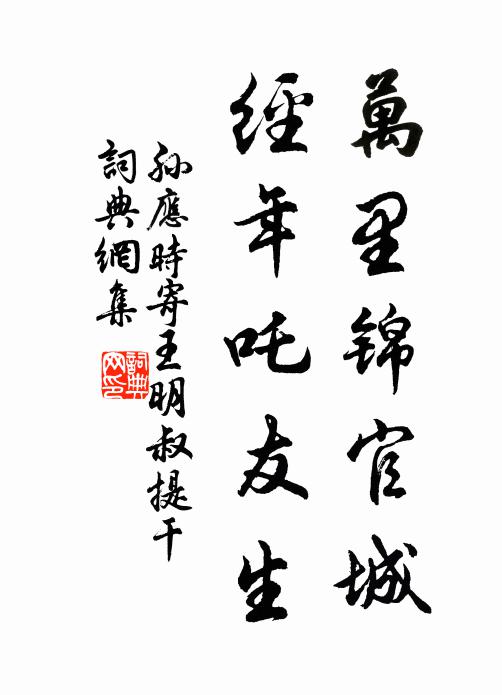 萬里锦官城
經年吒友生
孙應時寄王明叔提干
詞典網集
詞典网印